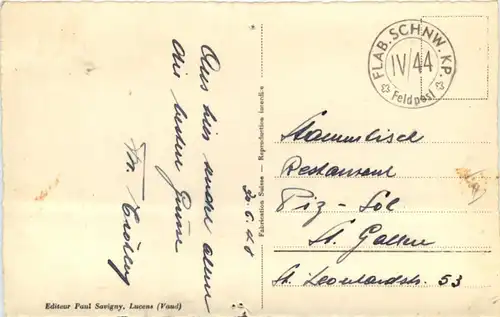 Aus hier sende allen
die besten Grüsse
Fabrication Suisse — Reproduction interdite
30.6.48
FLAB. SCHNW. KP.
IV/44
Feldpost
Stammtisch
Restaurant
Piz-Sol
St. Gallen
St. Leonhardstr. 53
Editeur Paul Savigny, Lucens (Vaud)